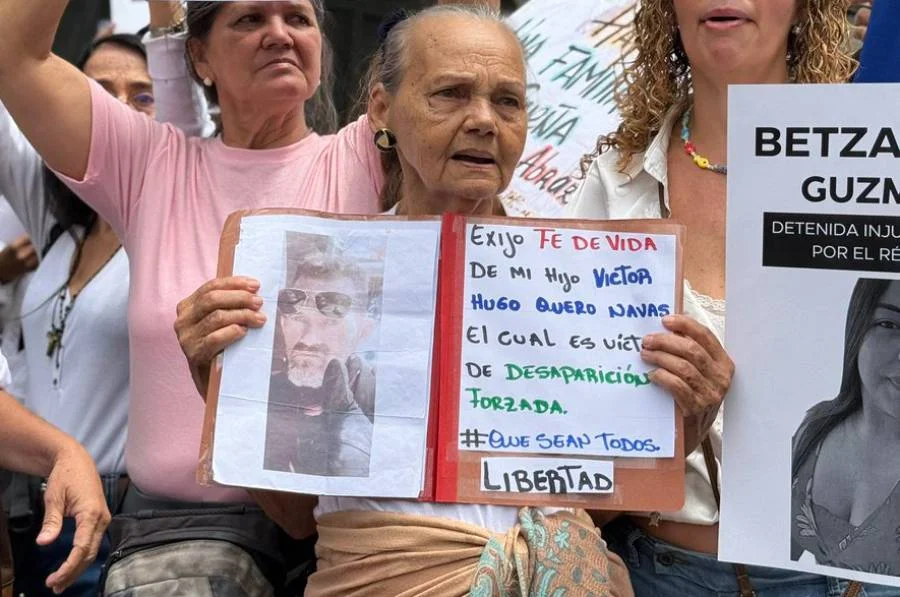 Exijo FE DE VIDA
DE MI HIJO VICTOR
HUGO QUERO NAVAS
EL CUAL ES
DE DESAPARICIÓN
FORZADA.
#QUE SEAN TODOS.
LIBERTAD
BETZA
GUZM
DETENIDA INJU
POR EL RÉ
FAMIN